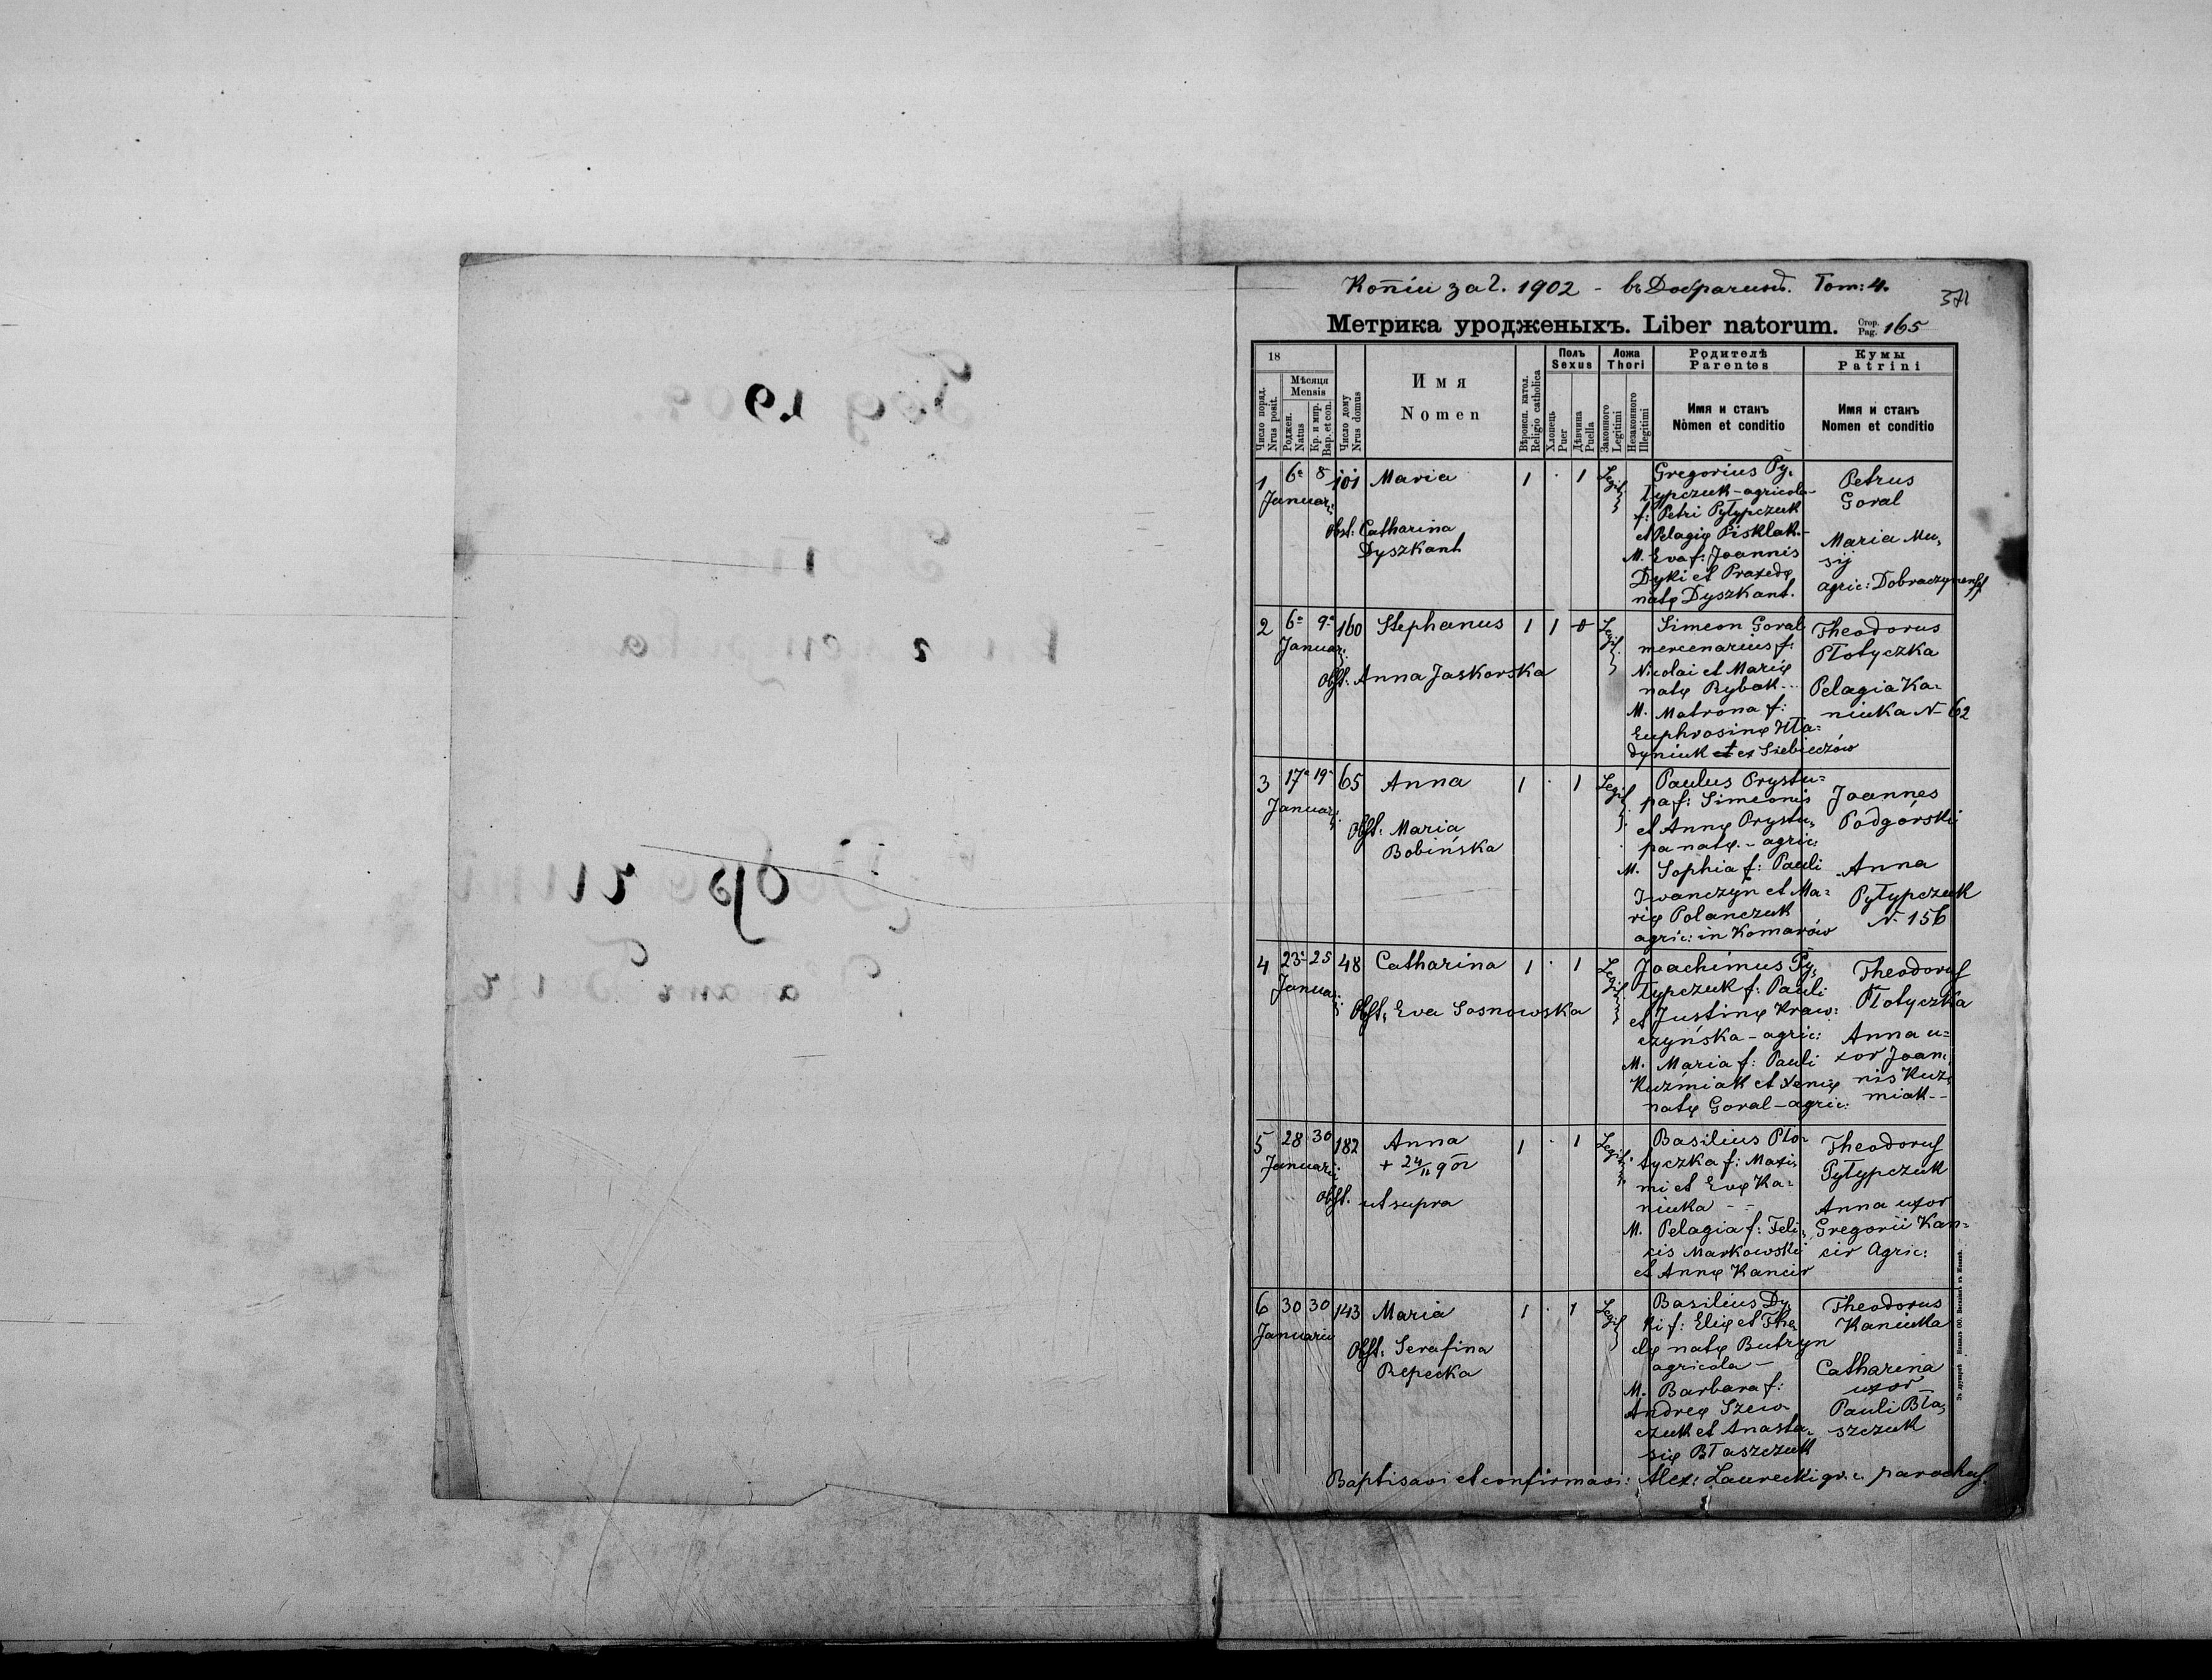 Копіи за г. 1902 - въ Добрачинѣ. Том: 4.
371
Метрика уродженыхъ. Liber natorum. Стор. Pag. 165
18
Число поряд. Nrus posit.
Мѣсяця Mensis
Роджен. Natus
Кр. и мир. Bap. et con.
Число дому Nrus domus
Имя
Nomen
Вѣроисп. катол. Religio catholica
Полъ Sexus
Хлопець Puer
Дѣвчина Puella
Ложа Thori
Законного Legitimi
Незаконного Illegitimi
Родителѣ Parentes
Имя и станъ
Nomen et conditio
Кумы Patrini
Имя и станъ
Nomen et conditio
1 6a 8 101 Maria 1 . 1 Legit.
Januarii
Obst: Catharina
Dyszkant
Gregorius Py=
łypczuk - agricola -
f: Petri Pyłypczuk
et Pelagię Pisklak. -
M. Eva f: Joannis
Dyki et Praxedę
natę Dyszkant.
Petrus
Goral
Maria Mu=
sij
agric: Dobraczynenses
2 6a 9a 160 Stephanus 1 1 0 Legit.
Januarii
Obst: Anna Jaskorska
Simeon Goral
mercenarius f:
Nicolai et Marię
natę Rybak...
M. Matrona f:
Euphrosinę Hła=
dyniuk et ex Siebieczów
Theodorus
Płotyczka
Pelagia Ka=
niuka N- 62
3 17a 19a 65 Anna 1 . 1 Legit.
Januarii
Obst: Maria
Bobińska
Paulus Prystu=
pa f: Simeonis
et Annę Prystu=
pa natę. - agric:
M. Sophia f: Pauli
Iwanczyn et Ma=
rię Polanczuk
agric: in Komarów
Joannes
Podgórski
Anna
Pyłypczuk
N. 156
4 23a 25 48 Catharina 1 . 1 Legit.
Januarii
Obst: Eva Sosnowska
Joachimus Py=
łypczuk f: Pauli
et Justinę Kraw=
czyńska - agric:
M. Maria f: Pauli
Kuźmiak et Xenię
natę Goral - agric:
Theodorus
Płotyczka
Anna u=
xor Joan=
nis Kuź=
miak - -
5 28 30 182 Anna 1 . 1 Legit.
Januarii
+ 24/11 902
Obst. ut supra
Basilius Pło=
tyczka f: Maxi=
mi et Evę Ka=
niuka - -
M. Pelagia f: Feli=
cis Markowski
et Annę Kancir
Theodorus
Pyłypczuk
Anna uxor
Gregorii Kan=
cir Agric:
6 30 30 143 Maria 1 . 1 Legit.
Januarii
Obst: Serafina
Repecka
Basilius Dy=
ki f: Elię et The=
clę natę Butryn
agricola -
M. Barbara f:
Andreę Szew
czuk et Anasta=
się Błaszczuk
Theodorus
Kaniuka
Catharina
uxor
Pauli Bła=
szczuk
Baptisavi et confirmavi: Alex: Laurecki gr. c. parochus.